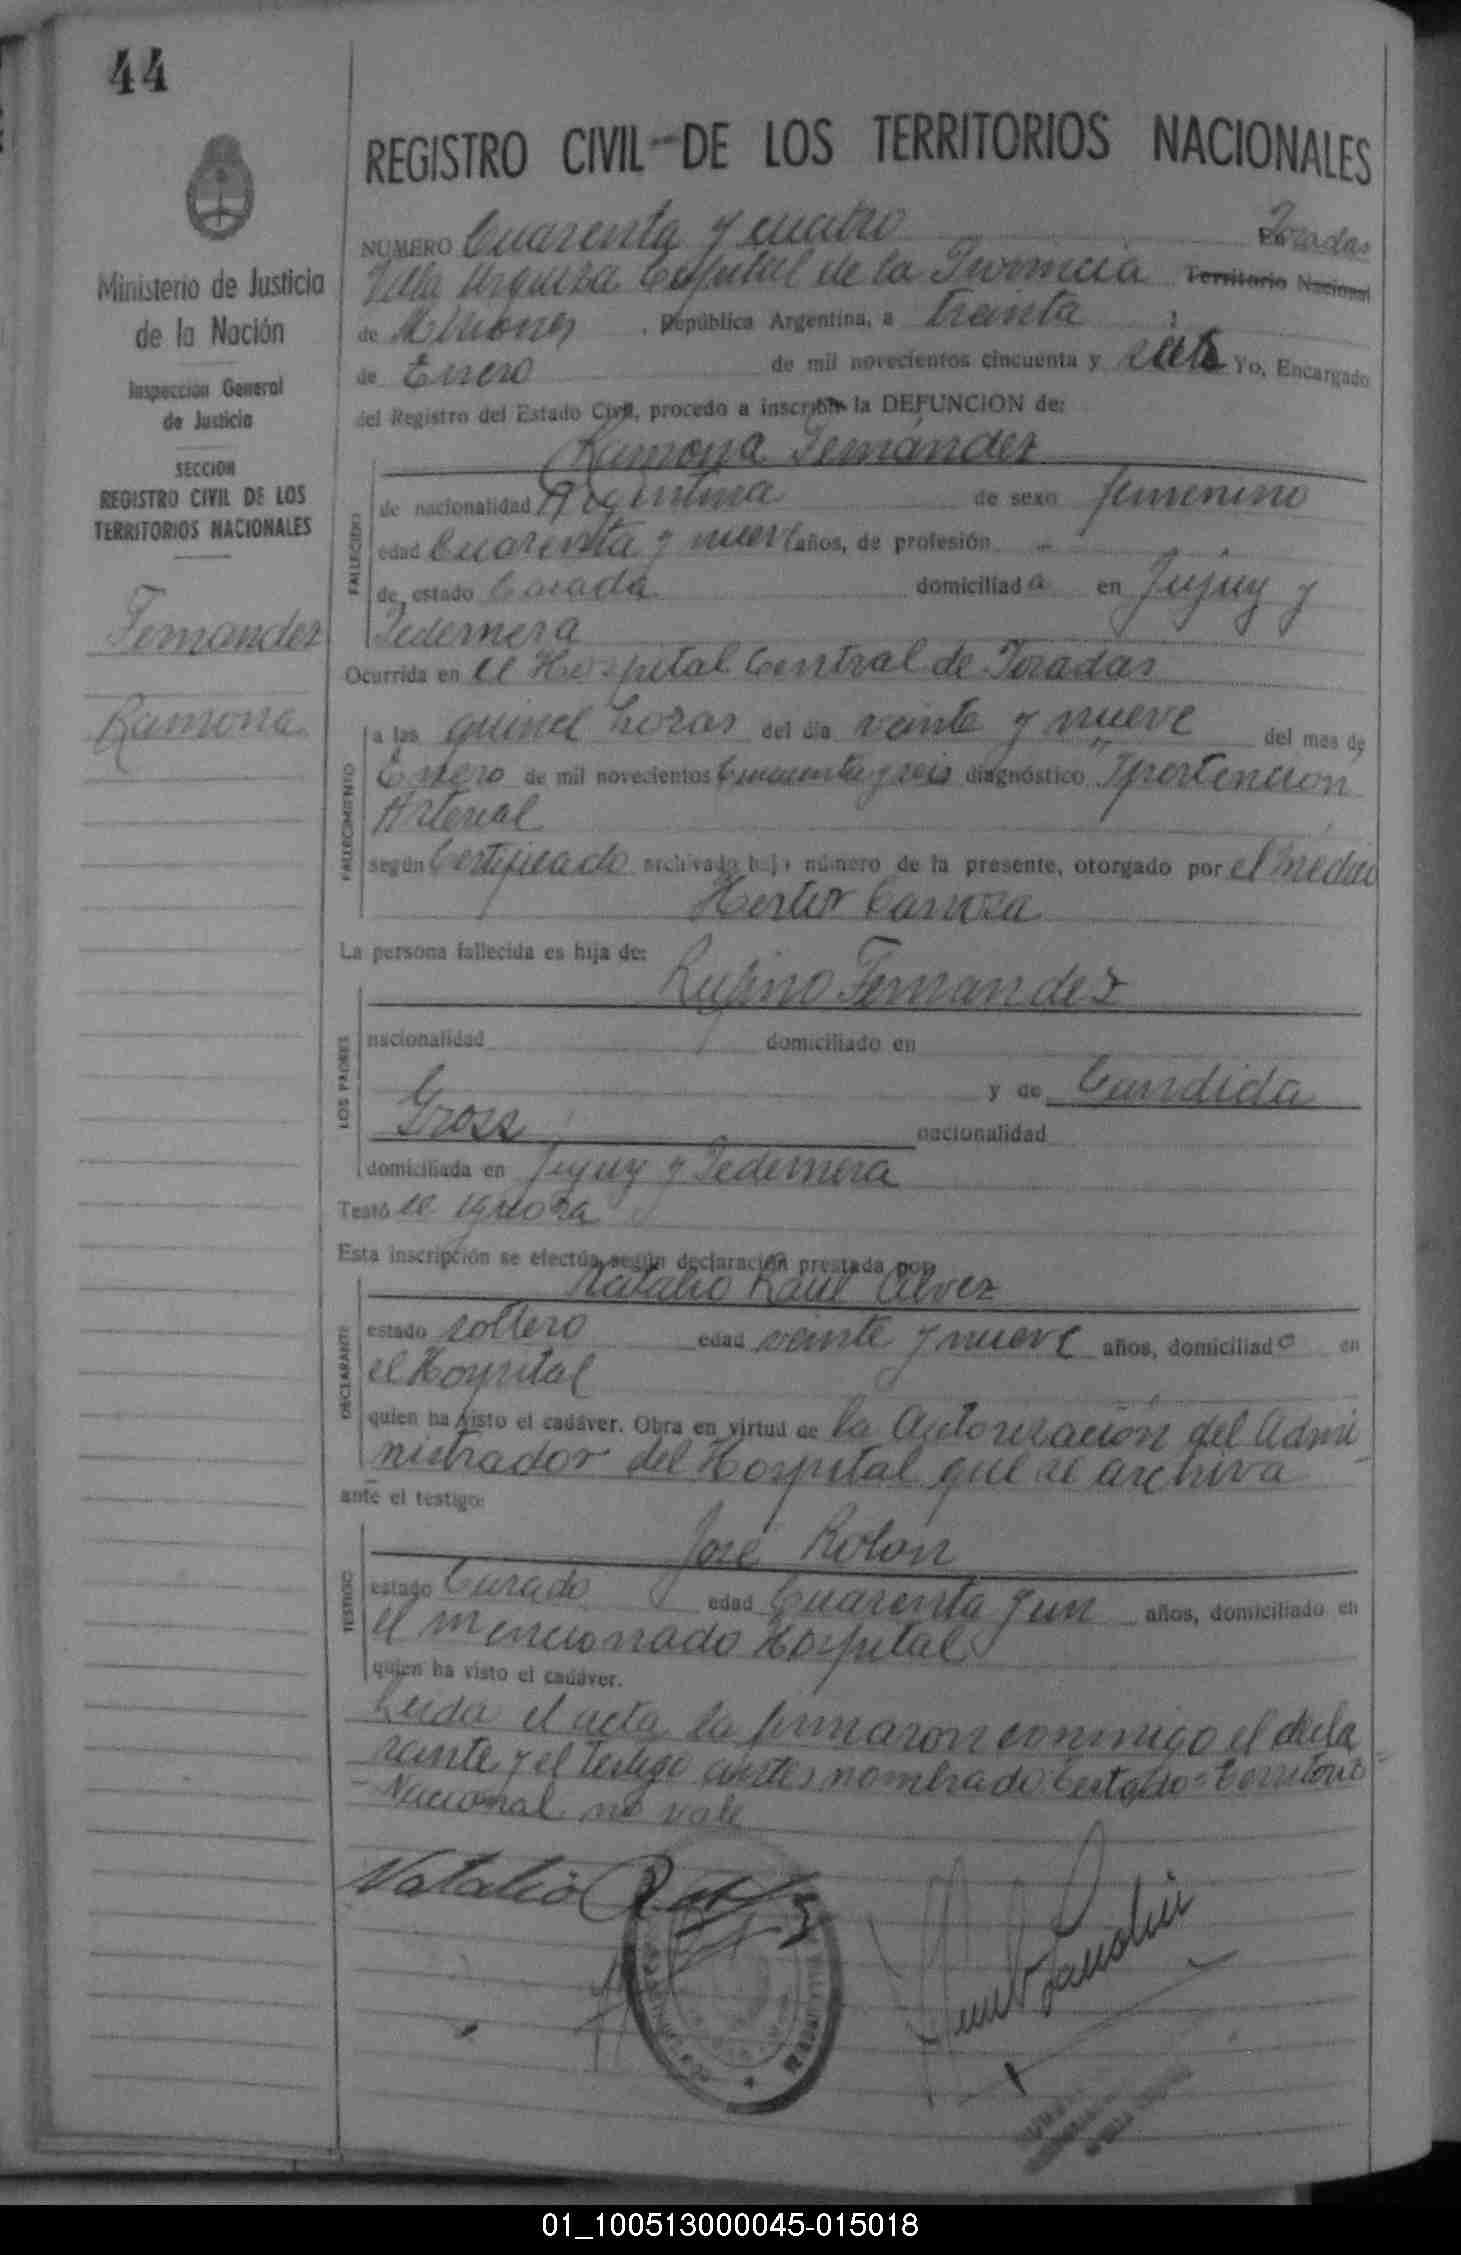 44
REGISTRO CIVIL DE LOS TERRITORIOS NACIONALES
Ministerio de Justicia
de la Nación
Inspección General
de Justicia
SECCION
REGISTRO CIVIL DE LOS
TERRITORIOS NACIONALES
Fernandez
Ramona
NUMERO Cuarenta y cuatro En Posadas
Villa Urquiza Capital de la Provincia Territorio Nacional
de Misiones, República Argentina, a treinta
de Enero de mil novecientos cincuenta y seis Yo, Encargado
del Registro del Estado Civil, procedo a inscribir la DEFUNCION de:
Ramona Fernández
FALLECIDO
de nacionalidad Argentina de sexo femenino
edad Cuarenta y nueve años, de profesión -
de estado Casada domiciliada en Jujuy y
Pedernera
Ocurrida en el Hospital Central de Posadas
FALLECIMIENTO
a las quince horas del día veinte y nueve del mes de
Enero de mil novecientos Cincuenta y seis diagnóstico "Ipertencion
Arterial
según Certificado archivado bajo número de la presente, otorgado por el médico
Hector Canosa
La persona fallecida es hija de:
Rufino Fernandez
LOS PADRES
nacionalidad domiciliado en
y de Candida
Gross nacionalidad
domiciliada en Jujuy y Pedernera
Testó se ignora
Esta inscripción se efectúa según declaración prestada por:
Natalio Raul Alvez
DECLARANTE
estado soltero edad veinte y nueve años, domiciliado en
el Hospital
quien ha visto el cadáver. Obra en virtud de la Autorización del Admi
nistrador del Hospital que se archiva
ante el testigo:
José Rolón
TESTIGO
estado Casado edad Cuarenta y un años, domiciliado en
el mencionado Hospital
quien ha visto el cadáver.
Leida el acta la firmaron conmigo el decla
rante y el testigo antes nombrado. Testado = Territorio =
Nacional no vale
Natalio R.
01_100513000045-015018